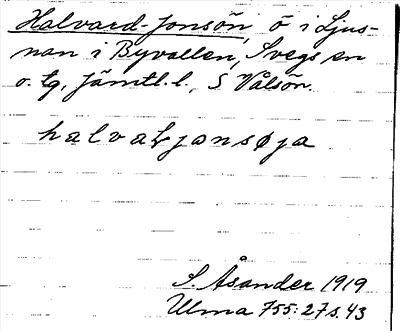 Halvard-Jonsön, ö i Ljus-
nan i Byvallen, Svegs sn
o. tg, Jämtl. l., S Vålsön.
halvaʈjansøja
S. Åsander 1919
Ulma 755:27 s. 43